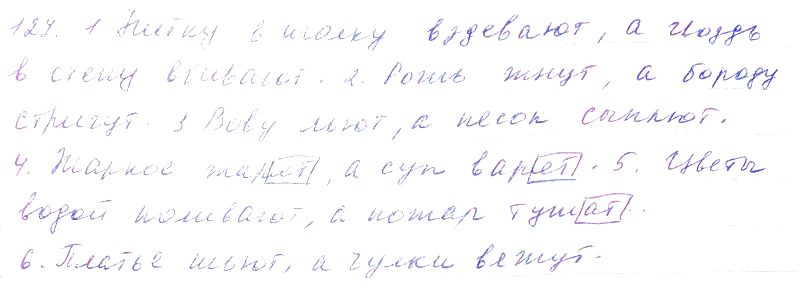 127. 1 Нитку в иголку вздевают, а гвоздь
в стену вбивают. 2. Рожь жнут, а бороду
стригут. 3 Воду льют, а песок сыплют.
4. Жаркое жарет, а суп варет. 5. Цветы
водой поливают, а пожар тушат.
6. Платье шьют, а чулки вяжут.